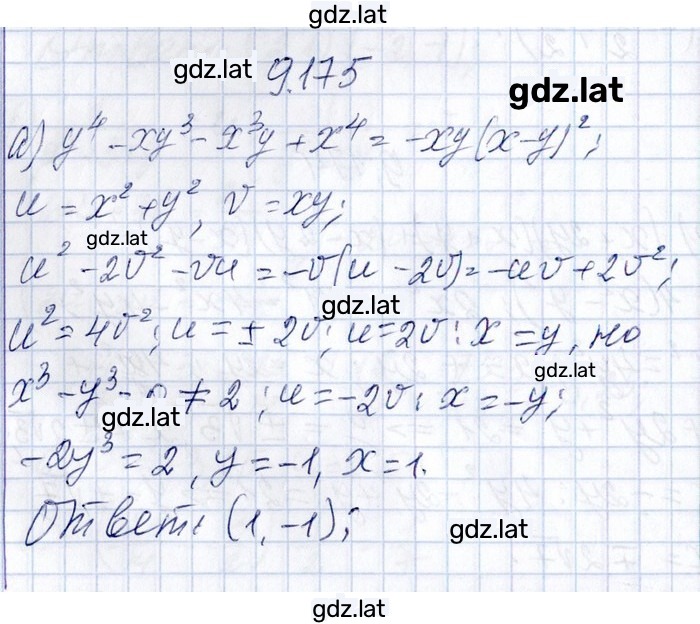 gdz.lat
gdz.lat 9.175
gdz.lat
а) y⁴ - xy³ - x³y + x⁴ = -xy(x-y)²;
u = x² + y², v = xy;
gdz.lat
u² - 2v² - vu = -v(u - 2v) = -uv + 2v²;
gdz.lat
u² = 4v²; u = ± 2v; u = 2v: x = y, но
gdz.lat
x³ - y³ = 0 ≠ 2; u = -2v: x = -y;
gdz.lat
-2y³ = 2, y = -1, x = 1.
Ответ: (1, -1);
gdz.lat
gdz.lat